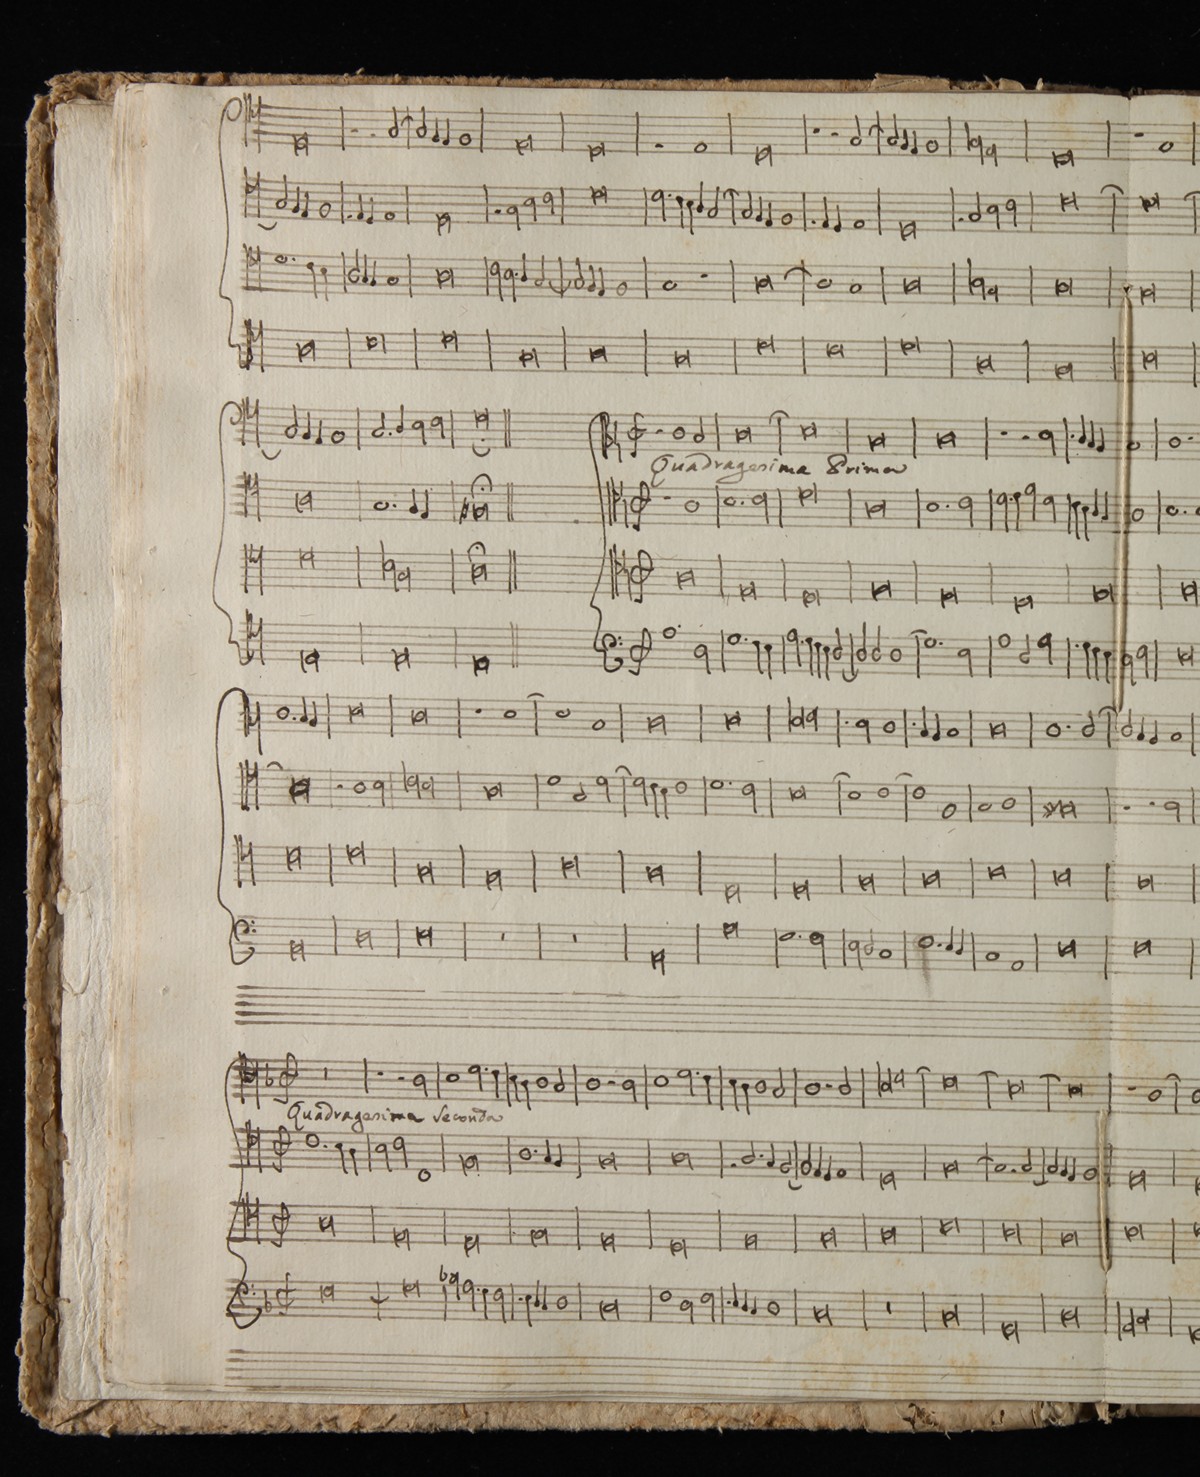 Quadragesima Prima
Quadragesima Seconda